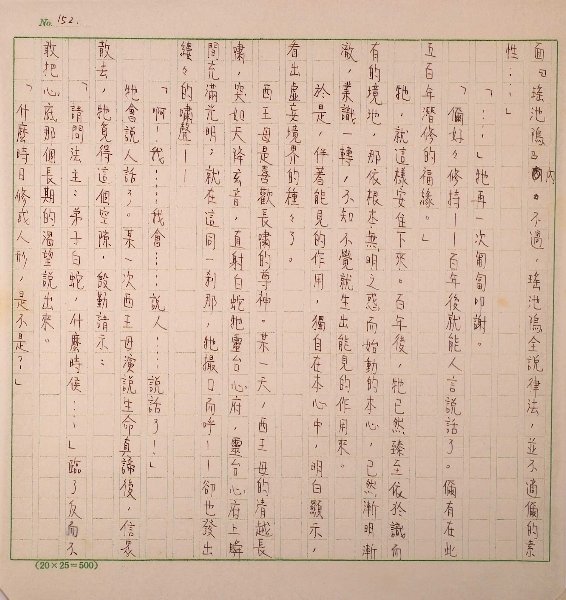 No. 152.
面曰瑤池鳩內。不過，瑤池鳩全說律法，並不適儞的素
性…」
「……」牠再一次匍匐叩謝。
「儞好々修持——百年後就能人言說話了。儞有在此
五百年潛修的福緣。」
牠，就這樣安住下來。百年後，牠已然臻至依於識而
有的境地，那依根本無明之惑而始動的本心，已然漸明漸
澈，業識一轉，不知不覺就生出能見的作用來。
於是，伴著能見的作用，獨自在本心中，明白顯示，
看出虛妄境界的種々了。
西王母是喜歡長嘯的尊神。某一天，西王母的清越長
嘯，突如天降玄音，直射白蛇牠靈台心府，靈台心府上瞬
間充滿光明，就在這同一剎那，牠撮口而呼——卻也發出
縷々的嘯聲——
「啊！我……我會……說人……說話了！」
牠會說人話了。某一次西王母演說生命真諦後，信眾
散去，牠覓得這個空隙，殷勤請示：
「請問法主：弟子白蛇，什麼時候……」臨了反而不
敢把心底那個長期的渴望說出來。
「什麼時日修成人形，是不是？」
(20×25=500)